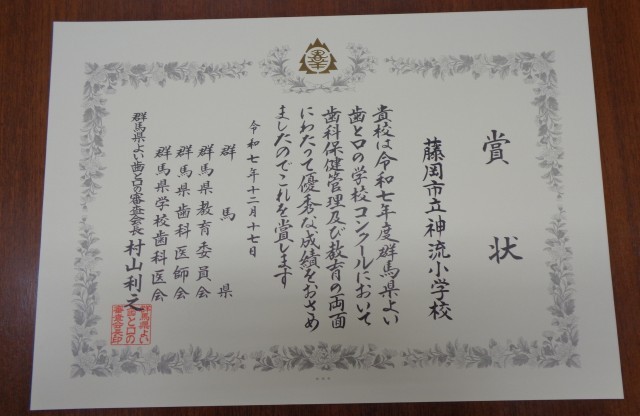 賞状
藤岡市立神流小学校
貴校は令和七年度群馬県よい
歯と口の学校コンクールにおいて
歯科保健管理及び教育の両面
にわたって優秀な成績をおさめ
ましたのでこれを賞します
令和七年十二月十七日
群馬県
群馬県教育委員会
群馬県歯科医師会
群馬県学校歯科医会
群馬県よい歯と口の審査会長 村山利之
群馬県よい
歯と口の
審査会長印